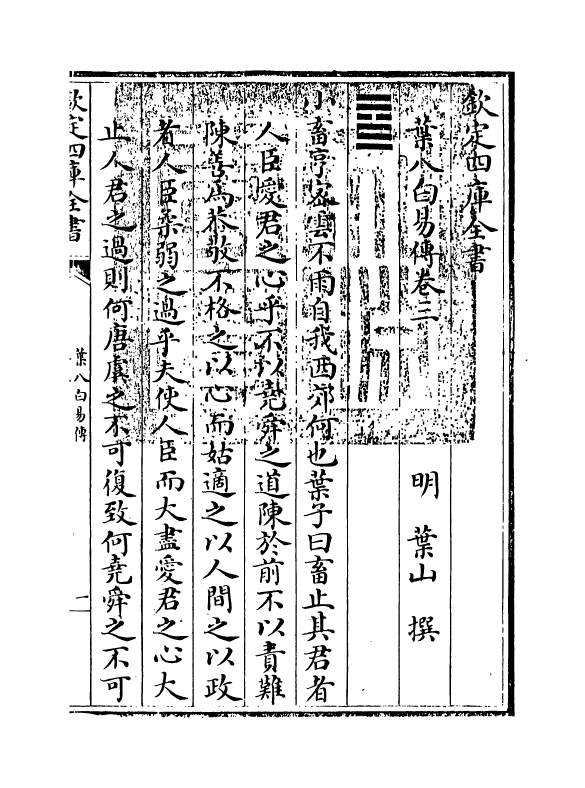 欽定四庫全書
葉八白易傳卷三
明 葉山 撰
小畜亨宻雲不雨自我西郊何也葉子曰畜止其君者
人臣愛君之心乎不以堯舜之道陳於前不以責難
陳善為恭敬不格之以心而姑適之以人間之以政
者人臣柔弱之過乎夫使人臣而大盡愛君之心大
止人君之過則何唐虞之不可復致何堯舜之不可
欽定四庫全書
葉八白易傳